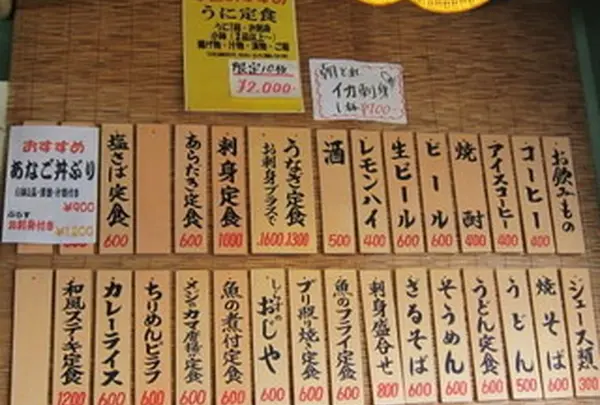 おすすめ
うに定食
限定10食
¥2,000
朝とれ
イカ刺身
¥700
おすすめ
あなご丼ぶり
¥900
お刺身付き
¥1,200
お飲みもの
コーヒー 400
アイスコーヒー 400
焼酎 400
ビール 600
生ビール 600
レモンハイ 400
酒 500
うなぎ定食 お刺身プラスで 1600 1300
刺身定食 1000
あらだき定食 600
塩さば定食 600
ジュース類 300
焼そば 600
うどん 500
うどん定食 600
そうめん 600
ざるそば 600
刺身盛合せ 800
魚のフライ定食 600
ブリ照り焼き定食 600
しらすのおじや 600
魚の煮付定食 600
メジのカマ定食 600
ちりめんピラフ 600
カレーライス 600
和風ステーキ定食 1200